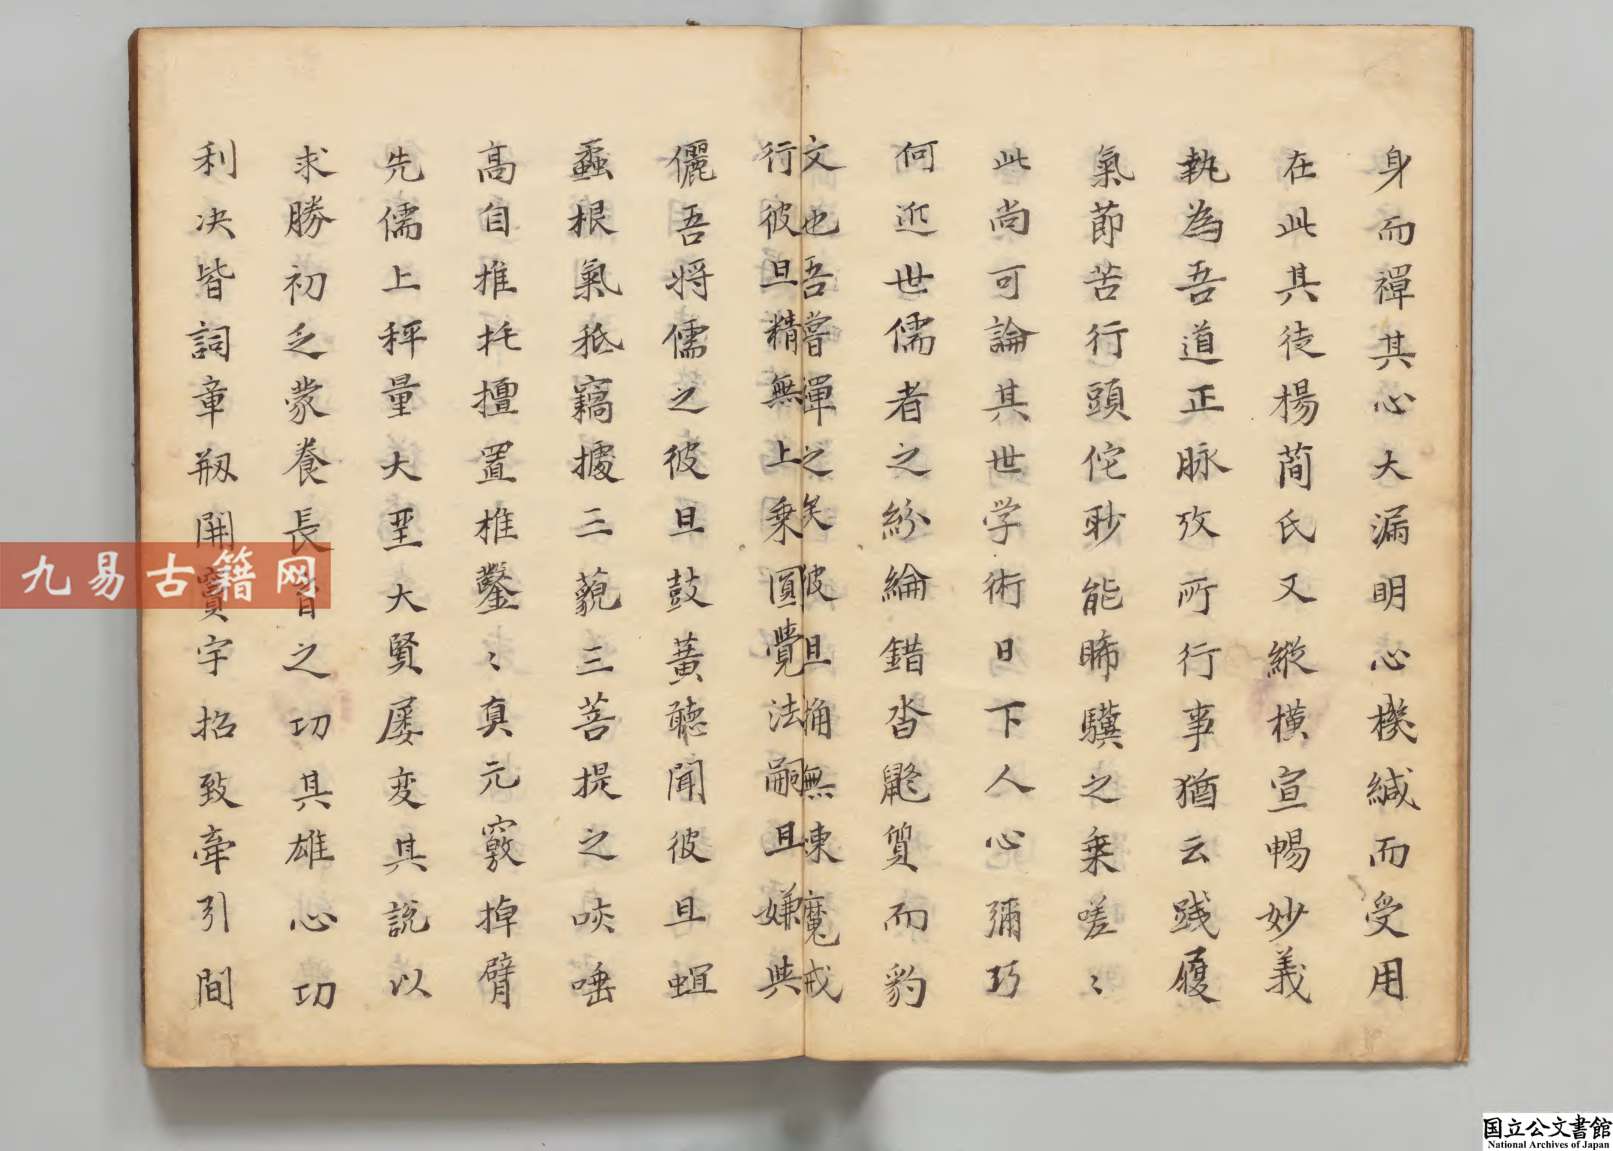 身而禪其心大漏明心機緘而受用
在此其徒楊簡氏又縱橫宣暢妙義
執為吾道正脉攷所行事猶云践履
氣節苦行頭佗耿能睎驥之乗嗟〻
此尚可論其世学術日下人心彌巧
何近世儒者之紛綸錯沓鼯質而豹
文也吾嘗禪之矣彼且痛無棟魔戒
行彼且精無上乗圓覺法嗣且嫌與
儷吾将儒之彼且鼓簧聴聞彼且
蝨根氣秪竊據二藐三菩提之啖唾
高自推托擅置椎鑿〻真元竅掉臂
先儒上秤量大聖大賢屡変其説以
求勝初乏蒙養長之功具雄心功
利决皆詞章剏開字招致牽引間
九易古籍网
国立公文書館
National Archives of Japan